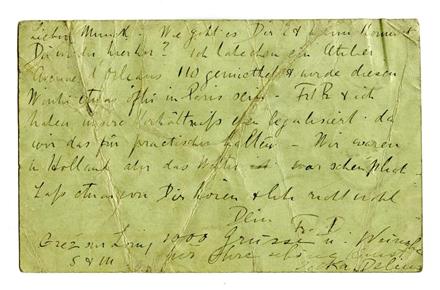 Lieber Munch - Wie geht es Dir & wann kommst
Du wieder hierher? Ich habe hier ein Atelier
Avenue d'Orleans 110 gemiethet & werde diesen
Winter etwas öfter in Paris sein - Frl R & ich
haben unsere Verhältniss eben legalisirt - da
wir das für practischer halten - Wir waren
in Holland aber das Wetter war scheusslich -
Lass etwas von Dir hören & lebe recht wohl
Dein Fr. D
Grez sur Loing 1000 Grüsse u. Wünsche
S & M Ihre
Jelka Delius